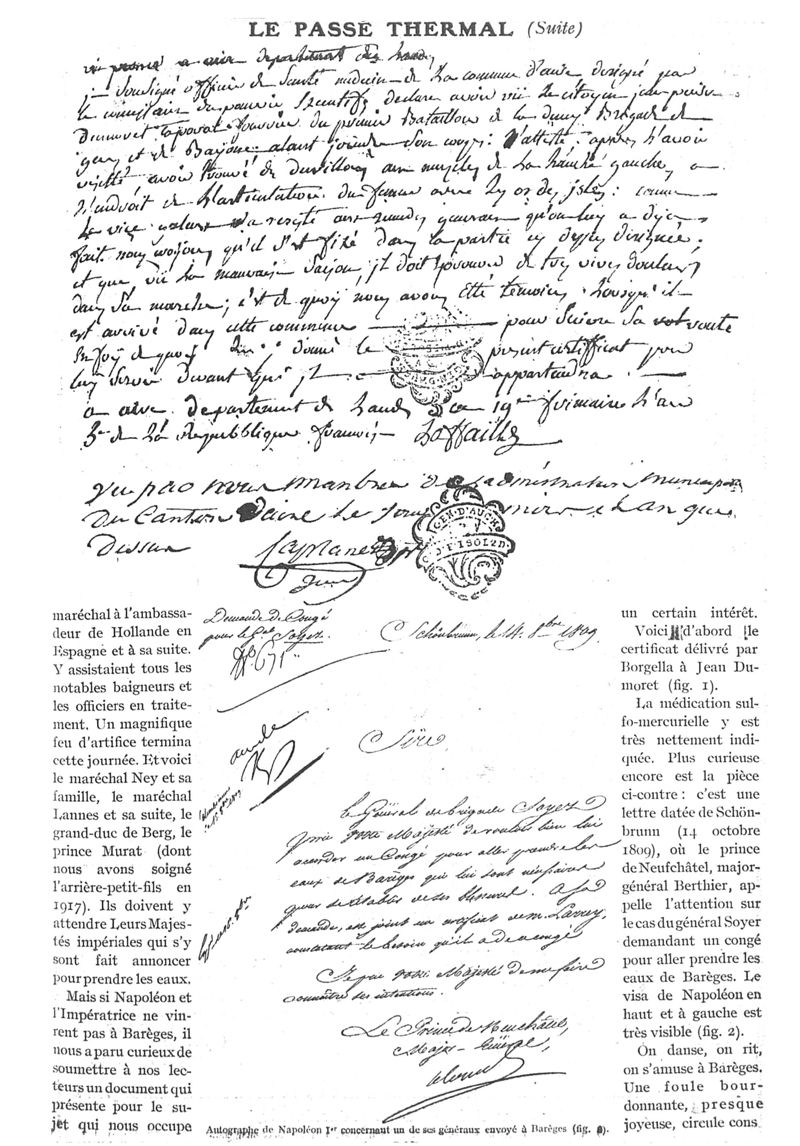 LE PASSÉ THERMAL (Suite)
Soussigné officier de Santé médecin de la commune d'aire désigné par
le commissaire du pouvoir Exécutif, déclare avoir vû le citoyen jean-pierre
Dumoret du premier Bataillon de la Brigade de
et de Bayonne allant joindre Son corps: J'atteste, après l'avoir
visité avoir trouvé de aux muscles de la hanche gauche, a
l'endroit de l'articulation du femur avec
Le vice a résisté aux remedes qu'on luy a déja
fait, nous voyons qu'il s'est fixé dans la partie cy dessus désignée;
et que, vû la mauvaise Saison, jl doit éprouver de tres vives douleurs
dans sa marche; c'est de quoy nous avons Été temoins, Lorsqu'il
est arrivé dans cette commune pour Suivre Sa route
En foy de quoy donné le présent certificat pour
luy Servir devant qui jl appartiendra
a aire département des Landes ce 19me frimaire L'an
de La Republique française Laffaille
Vu par nous membres de L'administration municipale
Du Canton D'aire Le jour mois et an que
Dessus Laplane
maréchal à l'ambassa-
deur de Hollande en
Espagne et à sa suite.
Y assistaient tous les
notables baigneurs et
les officiers en traite-
ment. Un magnifique
feu d'artifice termina
cette journée. Et voici
le maréchal Ney et sa
famille, le maréchal
Lannes et sa suite, le
grand-duc de Berg, le
prince Murat (dont
nous avons soigné
l'arrière-petit-fils en
1917). Ils doivent y
attendre Leurs Majes-
tés impériales qui s'y
sont fait annoncer
pour prendre les eaux.
Mais si Napoléon et
l'Impératrice ne vin-
rent pas à Barèges, il
nous a paru curieux de
soumettre à nos lec-
teurs un document qui
présente pour le su-
jet qui nous occupe
Demande de Congé
pour le Gal Soyez
671
Schönbrunn, le 14. 8bre 1809
Sire
Le Général de brigade Soyez
prie Votre Majesté de vouloir bien lui
accorder un Congé pour aller prendre les
eaux de Barèges qui lui sont nécessaires
pour se rétablir de ses blessures. A sa
demande, est joint un certificat de M. Larrey,
constatant le besoin qu'il a de ce congé
Je prie Votre Majesté de me faire
connaître ses intentions.
Le Prince de Neuchâtel,
Major-Général,
Autographe de Napoléon Ier concernant un de ses généraux envoyé à Barèges (fig. 2).
un certain intérêt.
Voici d'abord le
certificat délivré par
Borgella à Jean Du-
moret (fig. 1).
La médication sul-
fo-mercurielle y est
très nettement indi-
quée. Plus curieuse
encore est la pièce
ci-contre : c'est une
lettre datée de Schön-
brunn (14 octobre
1809), où le prince
de Neufchâtel, major-
général Berthier, ap-
pelle l'attention sur
le cas du général Soyer
demandant un congé
pour aller prendre les
eaux de Barèges. Le
visa de Napoléon en
haut et à gauche est
très visible (fig. 2).
On danse, on rit,
on s'amuse à Barèges.
Une foule bour-
donnante, presque
joyeuse, circule cons